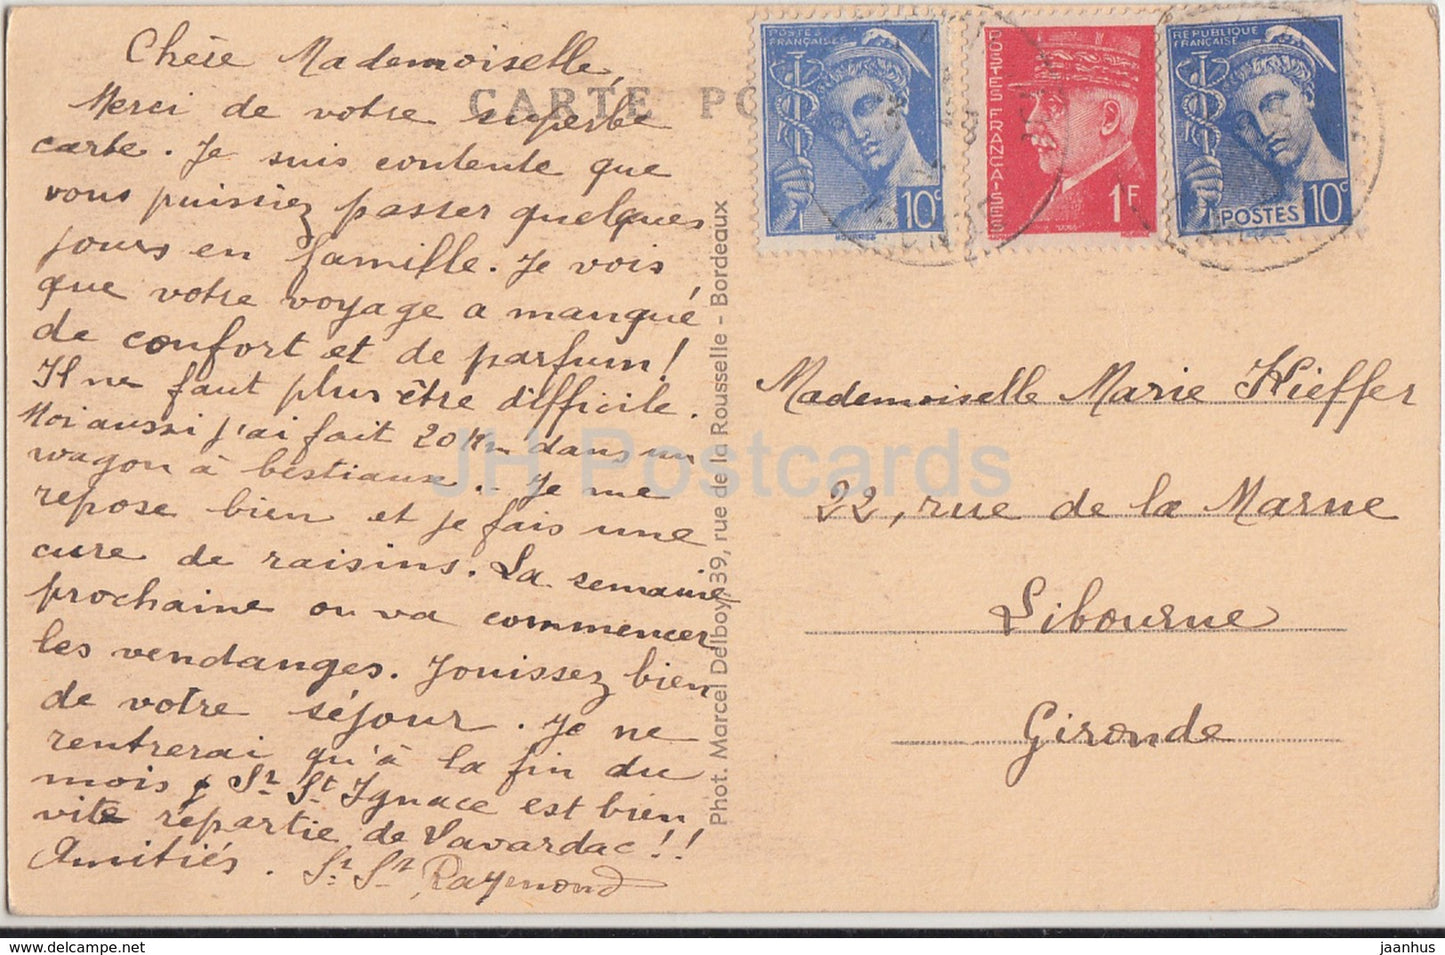 Chère Mademoiselle,
Merci de votre superbe
carte. Je suis contente que
vous puissiez passer quelques
jours en famille. Je vois
que votre voyage a manqué
de confort et de parfum!
Il ne faut plus être difficile.
Moi aussi j'ai fait 20 Km dans un
wagon à bestiaux. Je me
repose bien et je fais une
cure de raisins. La semaine
prochaine on va commencer
les vendanges. Jouissez bien
de votre séjour. Je ne
rentrerai qu'à la fin du
mois. Sr St Ignace est bien
vite repartie de Lavardac!!
Amitiés. Sr St Raymond
CARTE PO
Phot. Marcel Delboy, 39, rue de la Rousselle - Bordeaux
POSTES FRANÇAISES
10c
POSTES FRANÇAISES
1F
REPUBLIQUE FRANÇAISE
POSTES 10c
Mademoiselle Marie Kieffer
22, rue de la Marne
Libourne
Gironde
JH Postcards
hippostcard.com
jaanhus